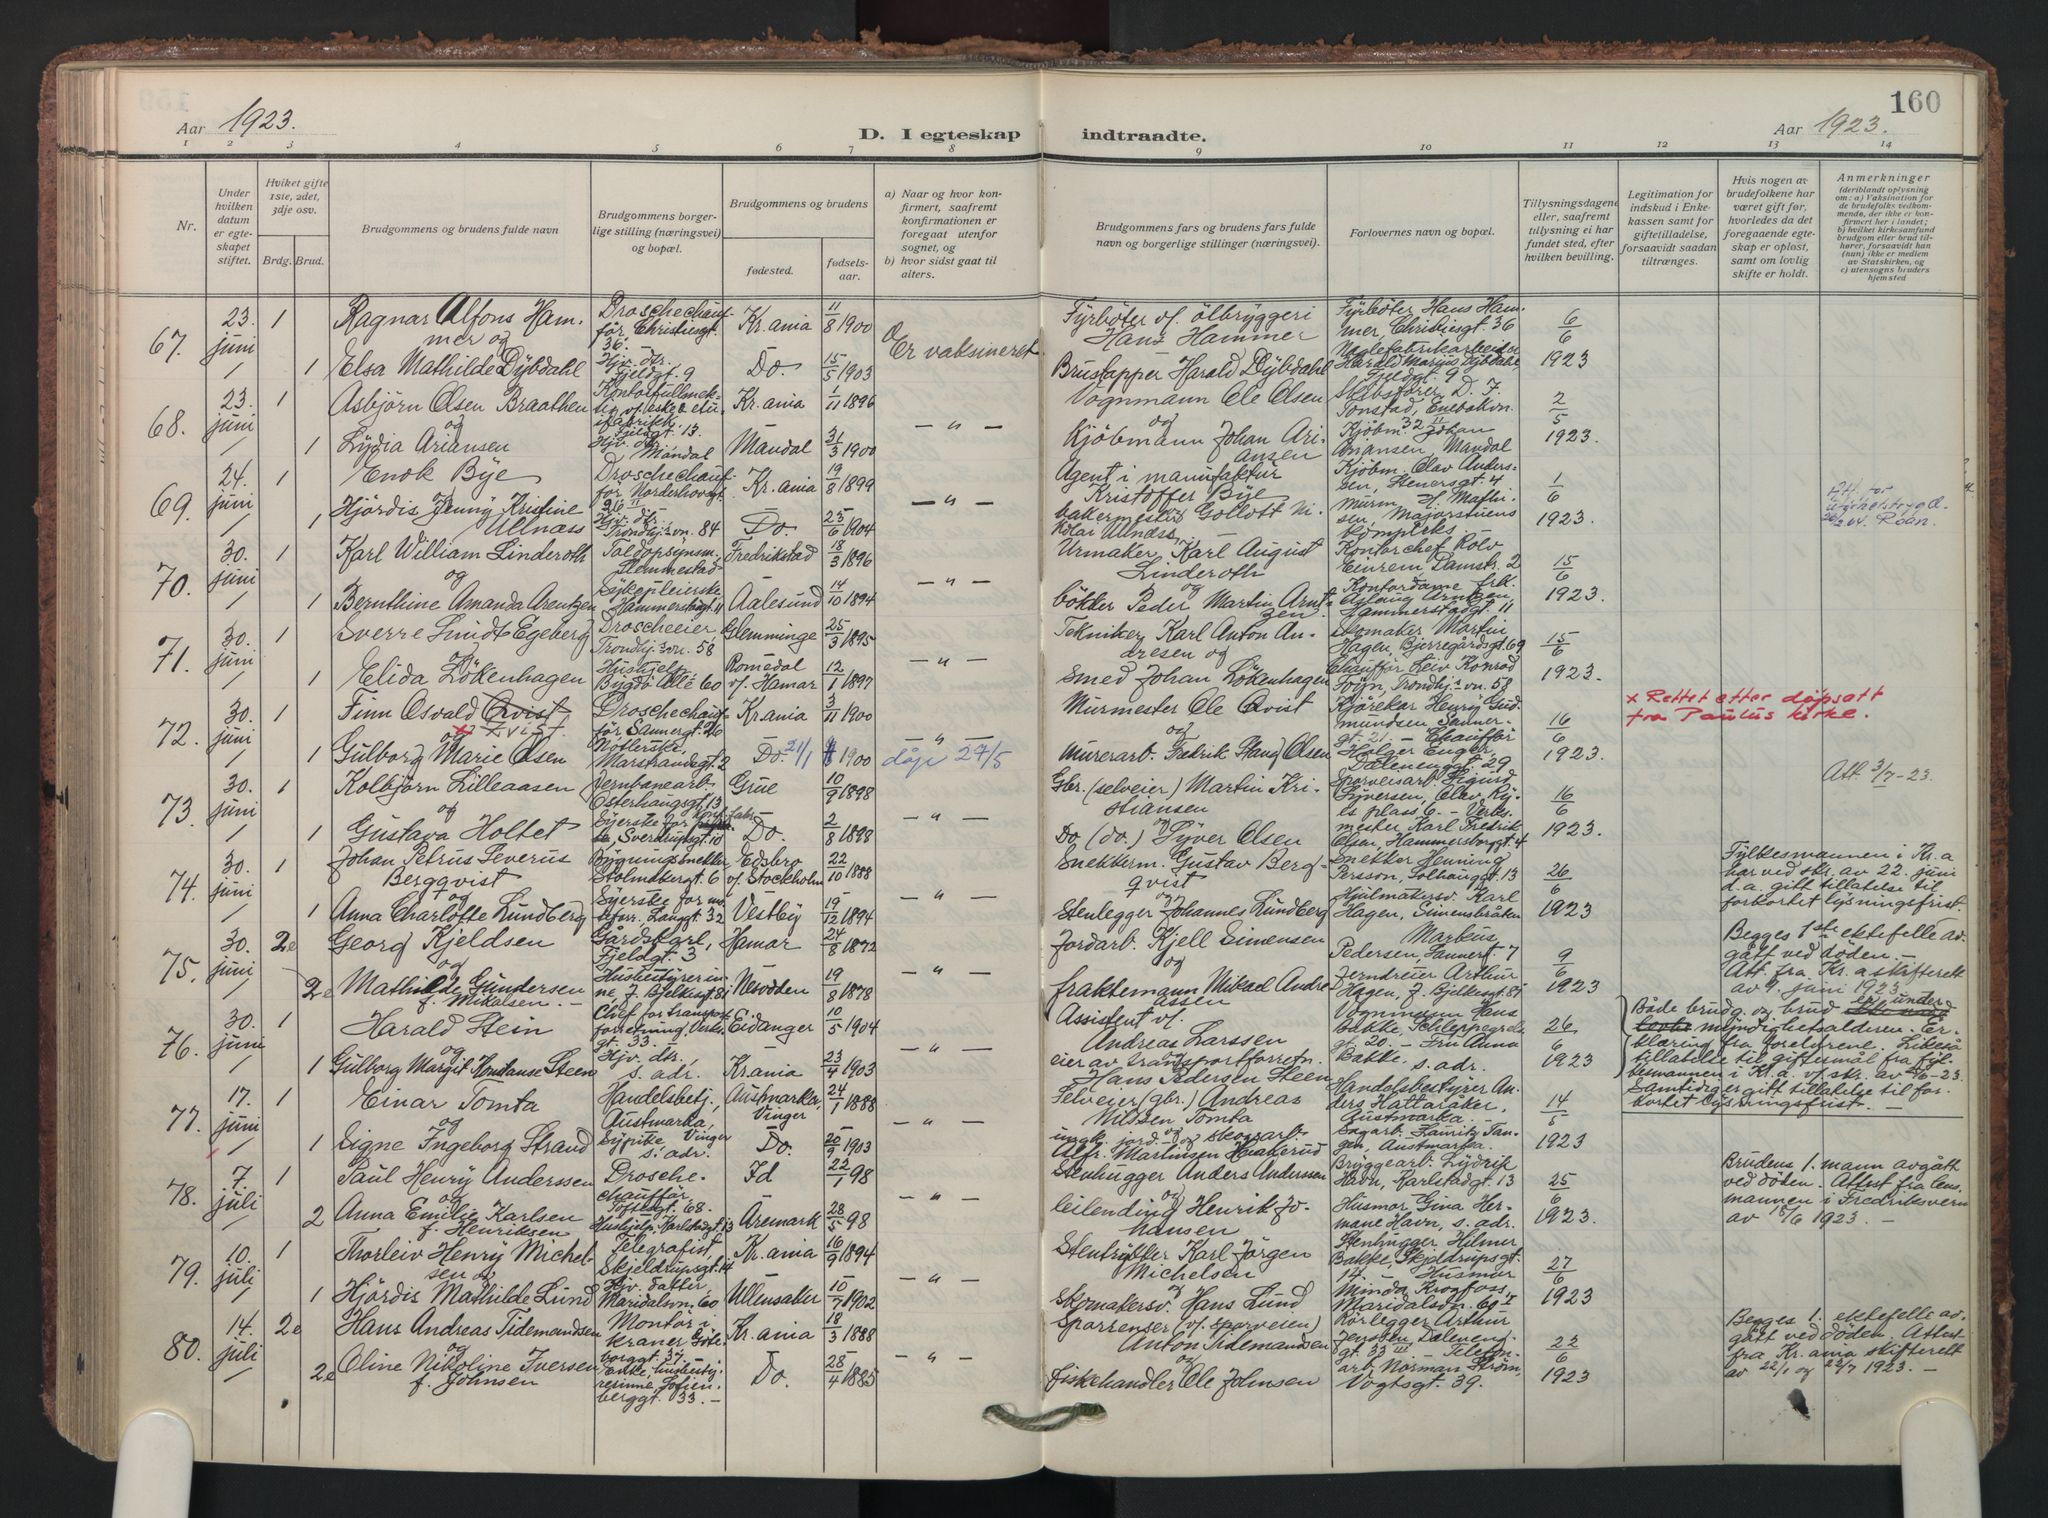 160
Aar 1923.
D. I egteskap indtraadte.
Aar 1923.
1 2 3 4 5 6 7 8 9 10 11 12 13 14
Nr.
Under hvilken datum er egteskapet stiftet.
Hviket gifte 1ste, 2det, 3dje osv.
Brdg. Brud.
Brudgommens og brudens fulde navn
Brudgommens borgerlige stilling (næringsvei) og bopæl.
Brudgommens og brudens
fødested.
fødselsaar.
a) Naar og hvor konfirmert, saafremt konfirmationen er foregaat utenfor sognet, og
b) hvor sidst gaat til alters.
Brudgommens fars og brudens fars fulde navn og borgerlige stillinger (næringsvei).
Forlovernes navn og bopæl.
Tillysningsdagene eller, saafremt tillysning ei har fundet sted, efter hvilken bevilling.
Legitimation for indskud i Enkekassen samt for giftetilladelse, forsaavidt saadan tiltrænges.
Hvis nogen av brudefolkene har været gift før, hvorledes da det foregaaende egteskap er opløst, samt om lovlig skifte er holdt.
Anmerkninger
(deriblandt oplysning om: a) Vaksination for de brudefolks vedkommende, der ikke er konfirmert her i landet; b) hvilket kirkesamfund brudgom eller brud tilhører, forsaavidt han (hun) ikke er medlem av Statskirken, og c) utensogns bruders hjemsted
67. 23. juni 1 Ragnar Alfons Hammer og Droschechauffør Christiesgt. 36. Kr.ania 11/8 1900 Er vaksineret Fyrbøter v/ ølbryggeri Hans Hammer Fyrbøter Hans Hammer, Christiesgt. 36 6/6 1923
1 Elsa Mathilde Dybdahl Hjv. dtr. Fjeldgt. 9 Do. 15/5 1903 Brustapper Harald Dybdahl Naglefabrikarbeider Harald Marius Dybdahl Fjeldgt. 9
68. 23. juni 1 Asbjørn Olsen Braathen og Fjeldgt. 13. Kr.ania 1/11 1896 — " — Vognmann Ole Olsen og Skibsfører D. F. Tonstad, Enebakvn. 32 II 2/5 1923.
1 Lydia Ariansen Hjv. dtr. Mandal Mandal 31/3 1900 Kjøbmann Johan Ariansen Kjøbm. Johan Ariansen, Mandal
69. 24. juni 1 Enok Bye Droschechauffør Norderhovgt. 26 II Kr.ania 19/8 1899 — " — Agent i manufaktur Kristoffer Bye Kjøbm. Olav Andersen, Stenersgt. 4 1/6 1923.
1 Hjørdis Jenny Kristine Ullnæss Hjv. dtr. Trondhj.vn. 84 Do. 25/6 1904 bakermester Gottlott Nikolai Ullnæss Murm. H. Mathisen, Majorstuens kompleks.
70. 30. juni 1 Karl William Linderoth og Toldopsynsm. Slemmestad Fredrikstad 18/3 1896 — " — Urmaker, Karl August Linderoth og Kontorchef Rolv Einrem Damstr. 2 15/6 1923.
1 Bernthine Amanda Arentzen Sykepleierske Hammersbgt. 11 Aalesund 14/10 1894 bøkker Peder Martin Arntzen Kontordame frk. Aslaug Arntzen, Hammerstadgt. 11
71. 30. juni 1 Sverre Lundt Egeberg og Droscheeier, Trondhj.vn. 58 Glemminge 25/3 1895 — " — Tekniker Karl Anton Andresen og Skomaker Martin Hagen, Bjerregårdsgt. 69 15/6 1923.
1 Elida Løkenhagen Hushjelp Bygdø Allé 60 Romedal v/ Hamar 12/1 1897 Smed Johan Løkenhagen Chauffør Leiv Konrad Føyn, Trondhj.vn. 58
72. 30. juni 1 Finn Osvald Qvist x Kvist. og Droschechauffør Sannergt. 26 Kr.ania 3/11 1900 — " — Murmester Ole Qvist og Kjørekar Henry Gudmundsen Sannergt. 21. 16/6 1923. x Rettet etter dåpsatt fra Paulus kirke.
1 Gulborg Marie Olsen Marstrandsgt. 2 Do. 21/1 1900 dåp 27/5 Murerarb. Fredrik Hans Olsen Chauffør Holger Enger, Dælenenggt. 29
73. 30. juni 1 Kolbjørn Lilleaasen og Jernbanearb. Østerhausgt. 13 Grue 10/9 1898 — " — Gbr. (selveier) Martin Kristiansen og Sporveisarb. Sigurd Syversen, Olav Ryes plass 6. 16/6 1923. Att. 3/7-23.
1 Gustava Holtet Syerske Sverdrupsgt. 10 Do. 2/8 1898 Do (do.) Syver Olsen Verksmester, Karl Fredrik Olsen, Hammersborggt. 4
74. 30. juni 1 Johan Petrus Severus Bergqvist og Bygningssnekker Stolmakergt. 6 Edsbro v/ Stockholm 22/10 1888 — " — Snekkerm. Gustav Bergqvist og Snekker Henning Persson, Solhauggt. 13 26/6 1923 Fylkesmannen i Kr.a har ved skr. av 22. juni d.a. gitt tillatelse til forkortet lysningsfrist.
1 Anna Charlotte Lundberg Langgt. 32 Vestby 19/12 1894 Stenlegger Johannes Lundberg Hjulmakersv. Karl Hagen, Simensbråten
75. 30. juni 2e Georg Kjeldsen og Gårdskarl, Fjeldgt. 3 Hamar 24/8 1872 — " — Jordarb. Kjell Simensen og Markus Pedersen, Sannergt. 7 9/6 1923 Begges 1ste ektefelle avgått ved døden. — Att. fra Kr.a skifterett av 9. juni 1923.
2e Mathilde Gundersen f. Mikalsen. — Husbestyrerinne, J. Bjelkesgt. 81 Nesodden 19/8 1878 fraktemann Mikael Andreassen Jerndreier Arthur Hagen, J. Bjelkesgt. 81
76. 30. juni 1 Harald Stein og Chef for transportforretning, Verksgt. 33. Eidanger 10/5 1904 — " — Assistent v/ Andreas Larssen og Vognmann Hans Bakke, Schleppegrelsgt. 20. 26/6 1923 Både brudg. og brud er under myndighetsalderen. Erklæring fra foreldrene. Likeså tillatelse til giftesmål fra fylkesmannen i Kr.a. v/ skr. av 26/6-23. Samtidig er gitt tillatelse til forkortet lysningsfrist. —
1 Gulborg Margit Konstanse Steen Hjv. dtr., s. adr. Kr.ania 23/4 1903 eier av transportforretn. Hans Pedersen Steen Fru Anna Bakke, s. adr.
77. 17. juni 1 Einar Tomta og Handelsbetj., Austmarka, Vinger Austmarka, Vinger 24/1 1888 — " — Selveier (gbr.) Andreas Nilssen Tomta og Handelsbestyrer Anders Hattaråker, Austmarka. 14/5 1923
1 Signe Ingeborg Strand Sypike, s. adr. Do. 20/9 1903 jord. og skogsarb. Alfr. Martinsen Sagarb. Lauritz Tanger, Austmarka.
78. 7. juli 1 Paul Henry Anderssen og Droschechauffør, Toftesgt. 68. Id 22/1 98 — " — Stenhugger Anders Anderssen og Bryggearb. Lydrik Havn, Karlstadgt. 13 25/6 1923. Brudens 1. mann avgått ved døden. Attest fra lensmannen i Fredriksvern av 18/6 1923. —
2 Anna Emilie Karlsen f. Henriksen Hushjelp, Karlstadgt. 13 Aremark 28/5 98 leilending Henrik Johansen Husmor Gina Hermane Havn, s. adr.
79. 10. juli 1 Thorleiv Henry Michelsen og Telegrafist, Skjeldrupsgt. 14 Kr.ania 16/9 1894 — " — Karl Jørgen Michelsen og Stenhugger Hilmer Bakke, Skjeldrupsgt. 14. 27/6 1923
1 Hjørdis Mathilde Lund Maridalsvn. 60 Ullensaker 10/7 1902 Skomakersv. Hans Lund Husmor Minda Krogfoss, Maridalsvn. 60 II
80. 14. juli 2e Hans Andreas Tidemandsen og Montør i kraner Göteborggt. 37 Kr.ania 18/3 1888 — " — Sporrenser (v/ sporveien) Anton Tidemandsen og Rørlegger Arthur Jenssen Dælenenggt. 33 III 22/6 1923 Begges 1. ektefelle avgått ved døden. Attest fra Kr.ania skifterett av 22/1 og 22/7 1923. —
2e Oline Nikoline Iversen f. Johnsen Sofienberggt. 33. — Do. 28/4 1885 Fiskehandler Ole Johnsen Telefonarb. Norman Strøm, Vogtsgt. 39.